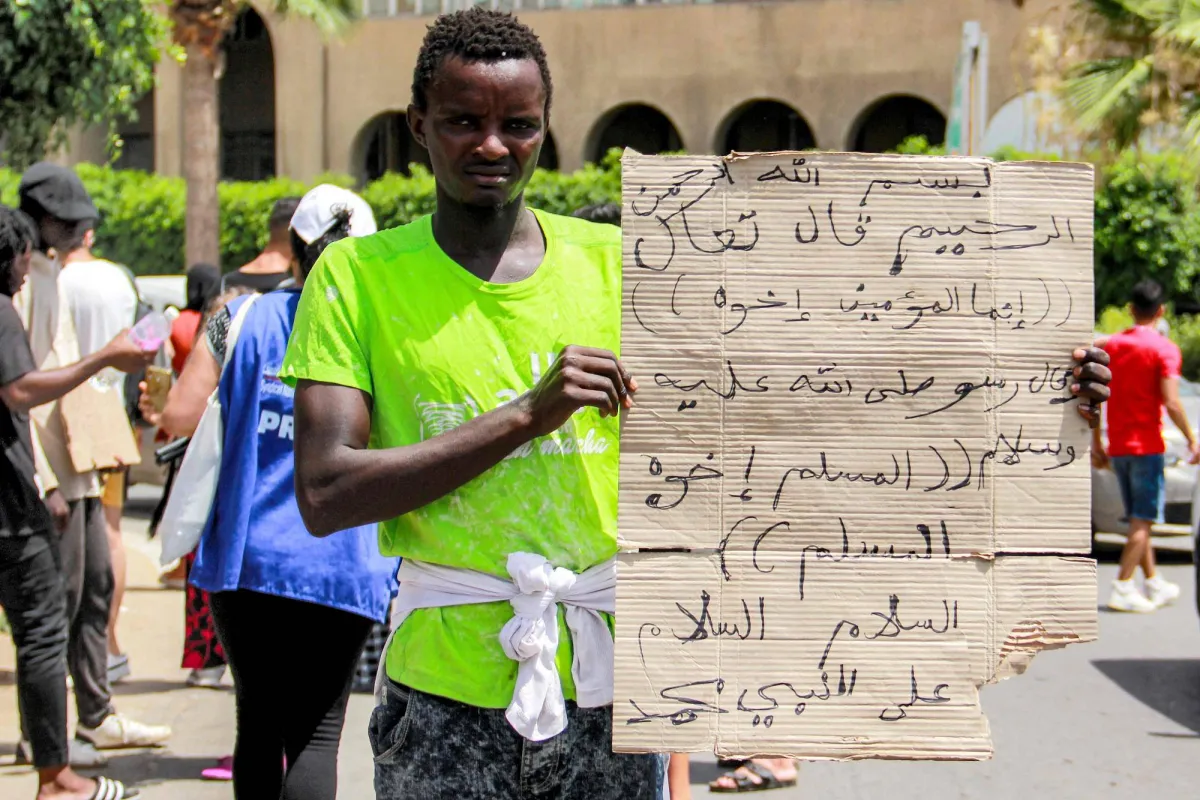 بسم الله الرحمن
الرحيم قال تعال
((إنما المؤمنين إخوة))
قال رسو صلى الله عليه
وسلام((المسلم إخوة
المسلم))
السلام السلام
على النبي محمد
PR